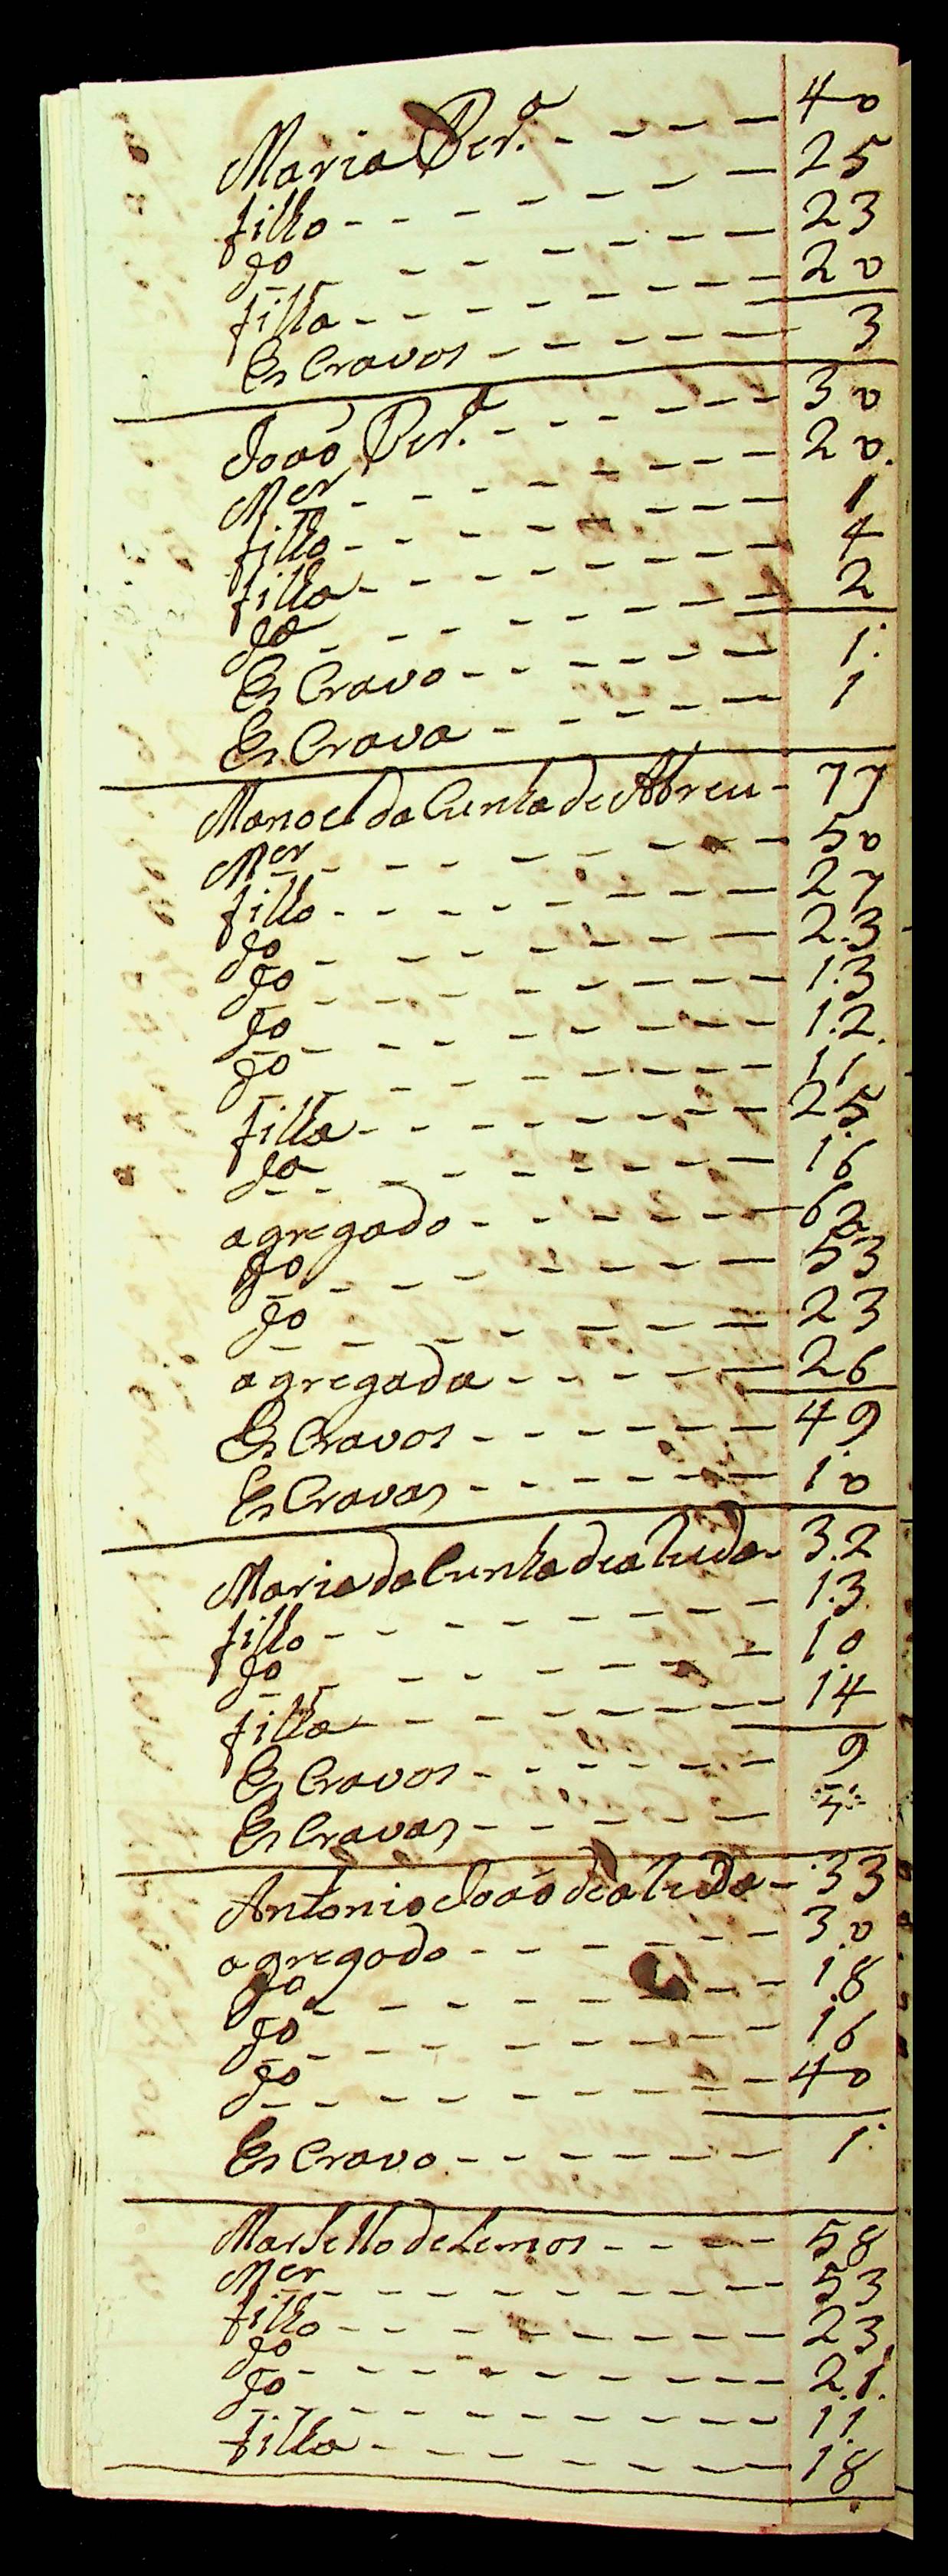 Maria Per.ª - - - - 40
filho - - - - - - - 25
do - - - - - - - 23
filha - - - - - - - 20
EsCravos - - - - - 3
João Per.ª - - - - - - 30
Mer - - - - - - - 20.
filho - - - - - - - 1
filha - - - - - - - 4
da - - - - - - - 2
EsCravo - - - - - - 1.
EsCrava - - - - - 1
Manoel da Cunha de Abreu - 77
Mer - - - - - - - 50
filho - - - - - - - 27
do - - - - - - - 23
do - - - - - - - 13
do - - - - - - - 12.
do - - - - - - - 11
filha - - - - - - - 25
da - - - - - - - 16
agregado - - - - - - 62
do - - - - - - - 53
do - - - - - - - 23
agregada - - - - - 26
EsCravos - - - - - - 49
EsCravas - - - - - - 10
Maria da Cunha 32
filho - - - - - - - 13
do - - - - - - - 10
filha - - - - - - - 14
EsCravos - - - - - - 9
EsCravas - - - - - -
Antonio João - 33
agregado - - - - - - 30
do - - - - - - - 18
do - - - - - - - 16
do - - - - - - - 40
EsCravo - - - - - - 1.
Marsello de Lemos - - - - 58
Mer - - - - - - - 53
filho - - - - - - - 23
do - - - - - - - 21.
do - - - - - - - 11
filha - - - - - - - 18